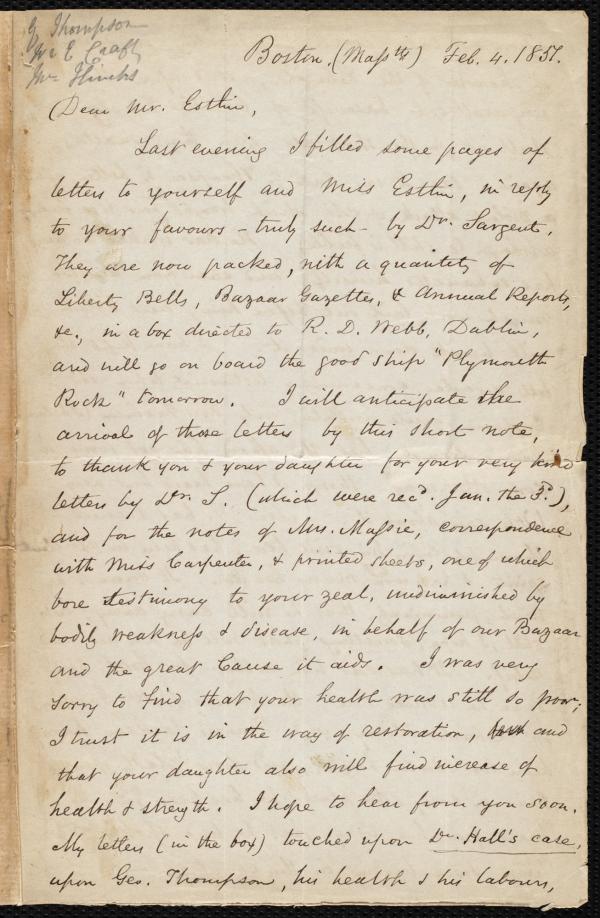 G. Thompson
Wm & E. Craft
Mr.
Boston. (Massts) Feb. 4. 1851.
Dear Mr. Estlin,
Last evening I filled some pages of
letters to yourself and Miss Estlin, in reply
to your favours – truly such – by Dr. Sargent.
They are now packed, with a quantity of
Liberty Bells, Bazaar Gazettes, & Annual Reports,
&c., in a box directed to R. D. Webb, Dublin,
and will go on board the good ship "Plymouth
Rock" tomorrow. I will anticipate the
arrival of those letters by this short note,
to thank you & your daughter for your very kind
letters by Dr. S. (which were recd. Jan. the 3d.),
and for the notes of Mrs. Massie, correspondence
with Miss Carpenter, & printed sheets, one of which
bore testimony to your zeal, undiminished by
bodily weakness & disease, in behalf of our Bazaar
and the great Cause it aids. I was very
sorry to find that your health was still so poor;
I trust it is in the way of restoration, and
that your daughter also will find increase of
health & strength. I hope to hear from you soon.
My letters (in the box) touched upon Dr. Hall's case,
upon Geo. Thompson, his health & his labours,